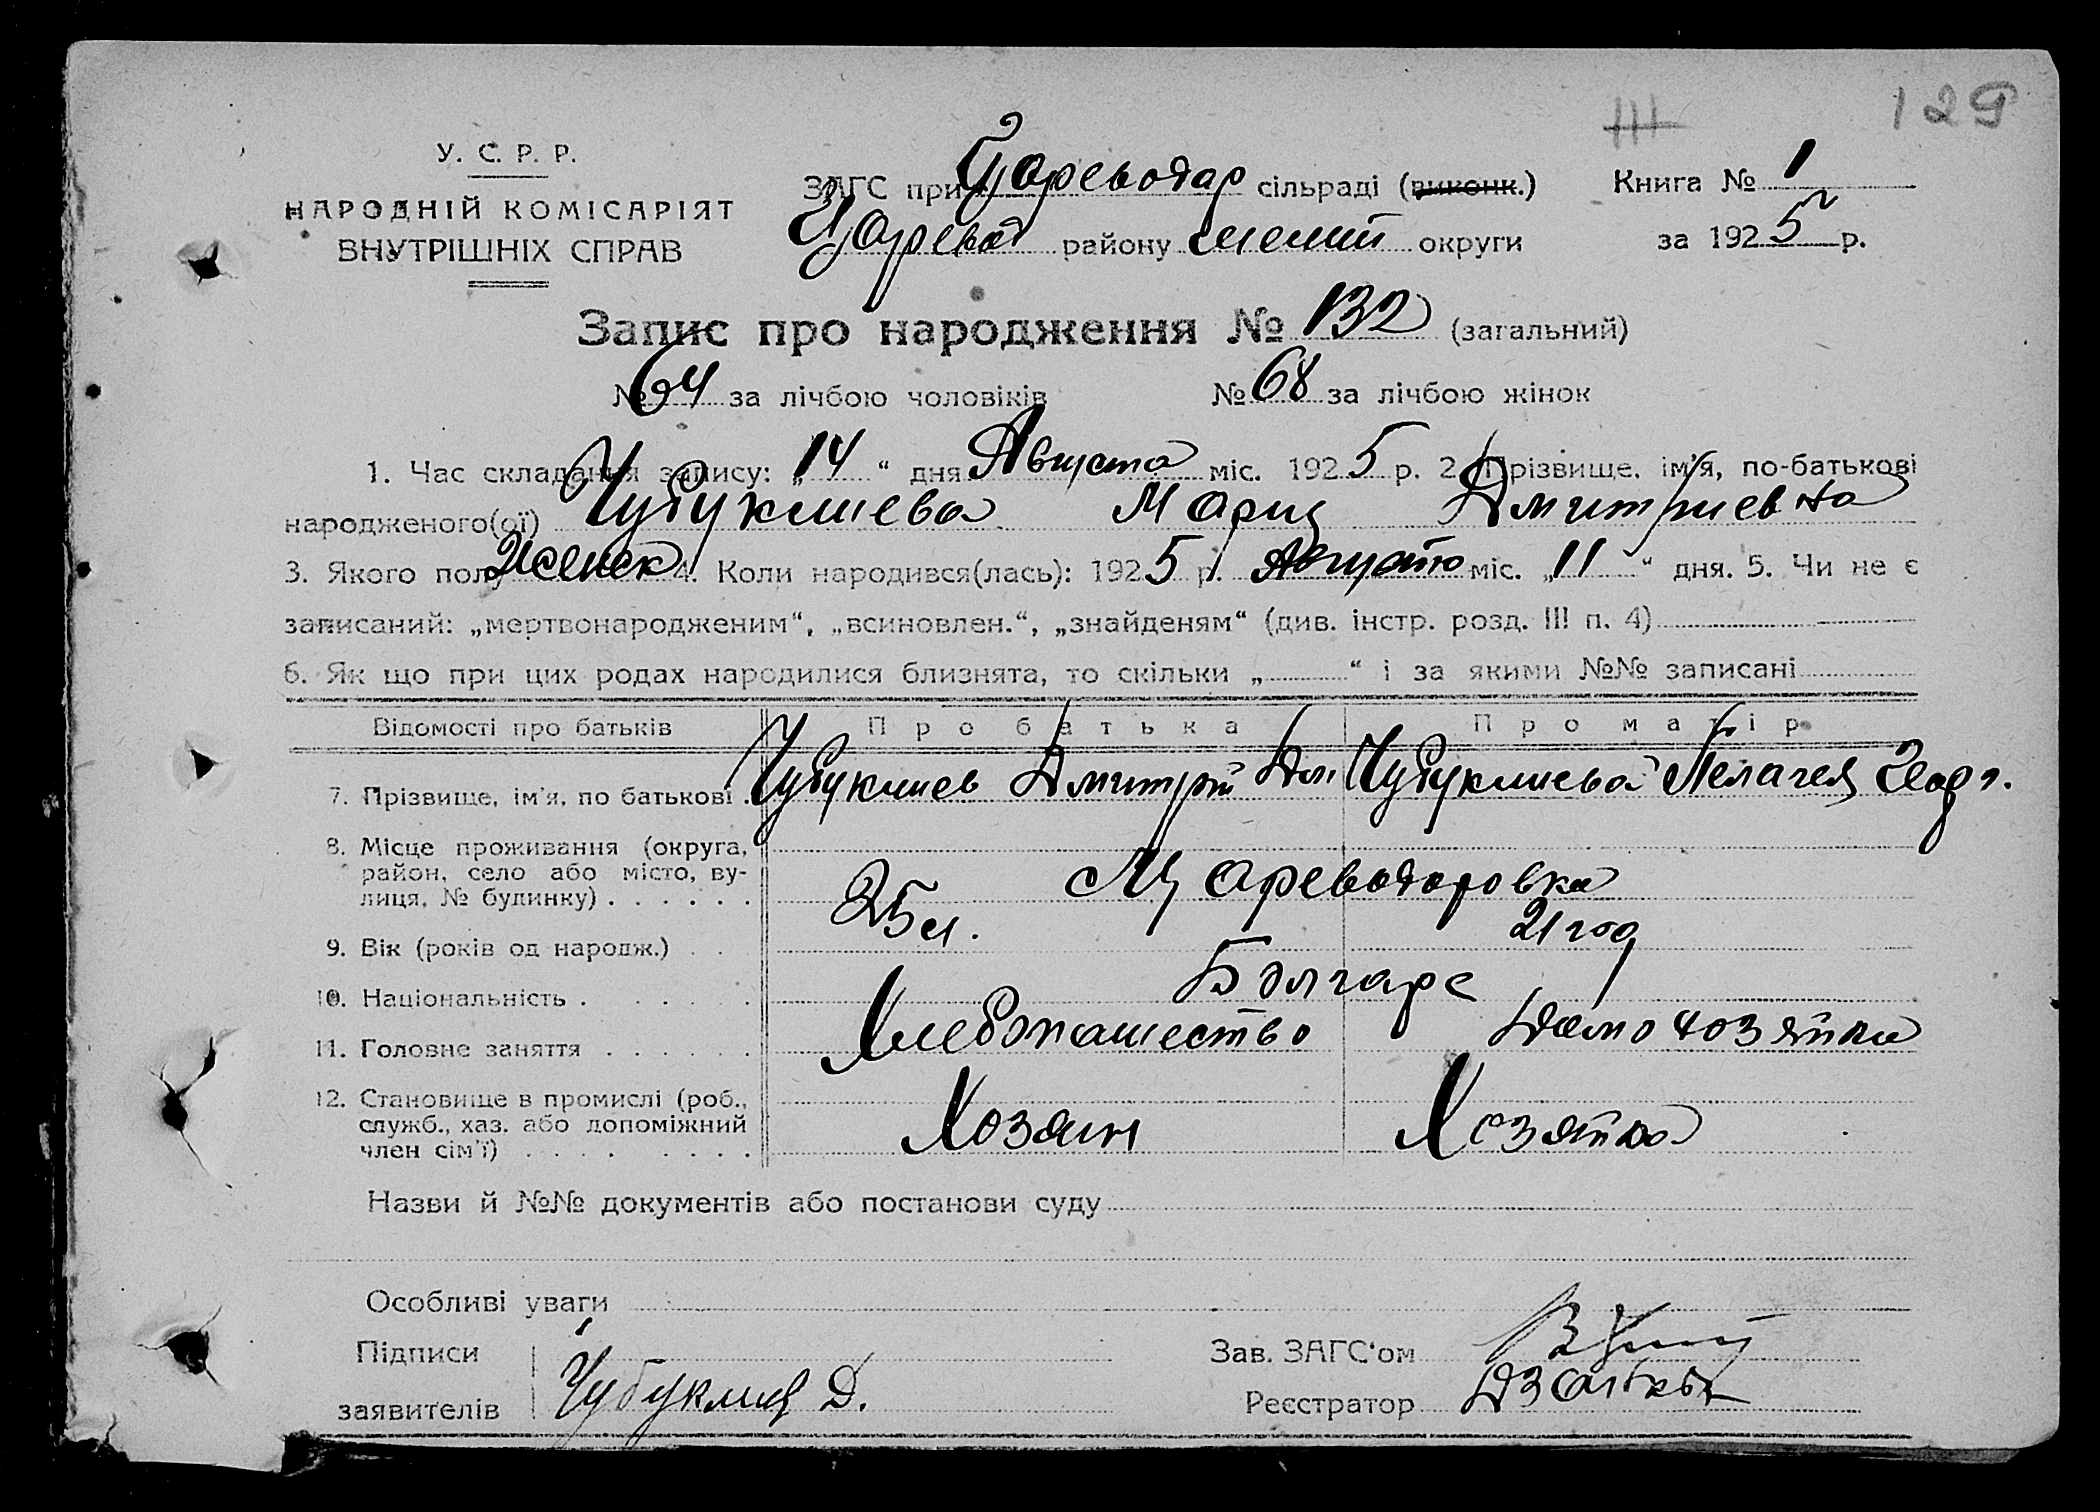 129
У. С. Р. Р.
НАРОДНІЙ КОМІСАРІЯТ
ВНУТРІШНІХ СПРАВ
ЗАГС при Цареводар сільраді (виконк.) Книга № 1
Царевод району мелит округи за 1925 р.
Запис про народження № 132 (загальний)
№ 64 за лічбою чоловіків № 68 за лічбою жінок
1. Час складання запису: „14“ дня Августа міс. 1925 р. 2. Прізвище, ім'я, по-батькові
народженого(ої) Чубуклиева Мария Дмитриевна
3. Якого полу Женск 4. Коли народився(лась): 1925 р. Августа міс. „11“ дня. 5. Чи не є
записаний: „мертвонародженим“, „всиновлен.“, „знайденям“ (див. інстр. розд. III п. 4)
6. Як що при цих родах народилися близнята, то скільки „ “ і за якими №№ записані
Відомості про батьків Про батька Про матір
7. Прізвище, ім'я, по батькові Чубуклиев Дмитрий Дм. Чубуклиева Пелагея Георг.
8. Місце проживання (округа,
район, село або місто, ву-
лиця, № будинку) Цареводаровка
9. Вік (років од народж.) 25 л. 21 год
10. Національність Болгаре
11. Головне заняття Хлебопашество Домохозяйка
12. Становище в промислі (роб.,
служб., хаз. або допоміжний
член сім'ї) Хозяин Хозяйка
Назви й №№ документів або постанови суду
Особливі уваги
Підписи
заявителів Чубуклиев Д.
Зав. ЗАГС'ом
Реєстратор